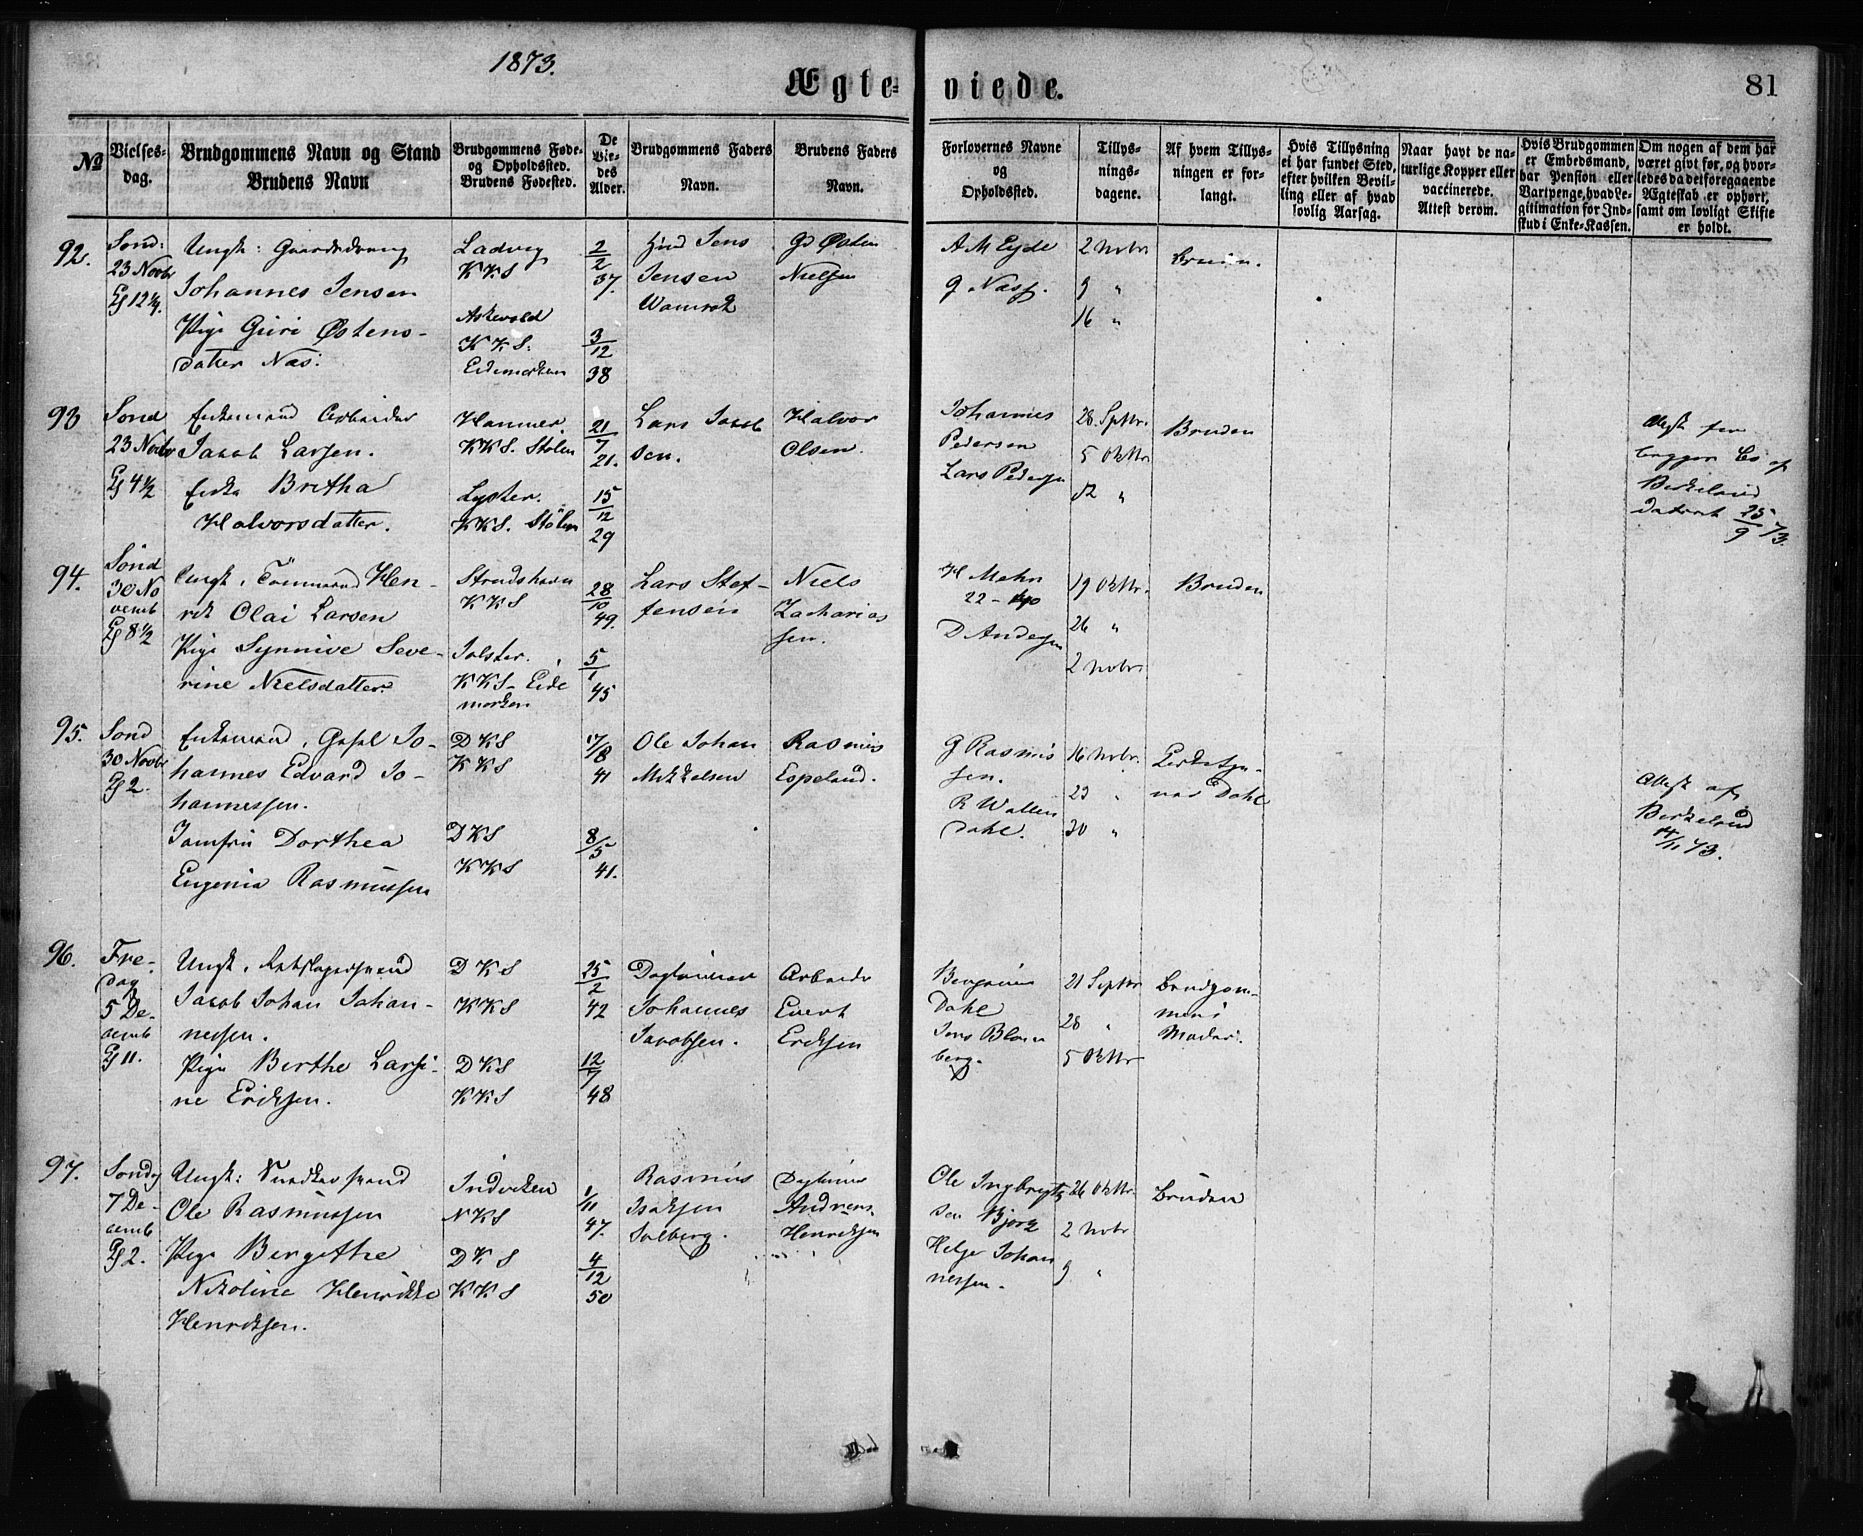 1873.
Ægte-
viede.
81
№
Vielses-
dag.
Brudgommens Navn og Stand
Brudens Navn
Brudgommens Føde-
og Opholdssted.
Brudens Fødested.
De
Vie-
des
Alder.
Brudgommens Faders
Navn.
Brudens Faders
Navn.
Forlovernes Navne
og
Opholdssted.
Tillys-
nings-
dagene.
Af hvem Tillys-
ningen er for-
langt.
Hvis Tillysning
ei har fundet Sted,
efter hvilken Bevil-
ling eller af hvad
lovlig Aarsag.
Naar havt de na-
turlige Kopper eller
vaccinerede.
Attest derom.
Hvis Brudgommen
er Embedsmand,
har Pension eller
Vartpenge, hvad Le-
gitimation for Ind-
skud i Enke-Kassen.
Om nogen af dem har
været givt før, og hvor-
ledes da det foregaaende
Ægteskab er ophørt,
samt om lovligt Skifte
er holdt.
92.
Sond:
23 Novbr
Ungk: Gaardsdreng
Johannes Jensen
Pige Guri Østens-
datter Nas:
Ladvig
KKS
Askevold
KKS:
Eidemarken
2/2
37.
3/12
38
Jens
Jensen
Østen
Nielsen
A M Eyde
2 Novbr
9 "
16 "
93
Sond
23 Novbr
Kl 4½
Enkemand Arbeider
Jacob Larsen.
Enke Britha
Halvorsdatter.
Hammer.
KKS. Stølen
Lyster.
KKS. Stølen
21/7
21.
15/12
29
Lars Jacob
sen.
Halvor
Olsen.
Johannes
Pedersen
Lars Pedersen
28. Septbr.
5 Oktbr
12 "
Bruden
Attest for
begge
Berkeland
dateret 25/9 73.
94.
Sond
30 No
vemb
Kl 8½
Ungk. Tømmermand Hen-
rik Olai Larsen
Pige Synnive Seve-
rine Nielsdatter.
Strudshavn
KKS
Jølster.
KKS- Eide
marken
28/10
49.
5/1
45
Lars Stef-
fensen
Niels
Zacharias
sen.
H Mohn
D Andersen
19 Oktbr.
26 "
2 Novbr.
Bruden
95.
Sond
30 Novbr
Kl 2.
Enkemand, Gesel Jo-
hannes Edvard Jo-
hannessen.
Jomfru Dorthea
Eugenia Rasmussen
DKS
KKS
DKS
KKS
17/8
41
8/5
41.
Ole Johan
Mikkelsen
Rasmus
Espeland.
G Rasmus
sen.
R Wallen
dahl.
16 Novbr.
23 "
30 "
Dahl
Attest af
Berkeland
14/11 73.
96.
Fre-
dag
5 De-
cemb
Kl 11.
Ungk. Rebslagersvend
Jacob Johan Johan-
nessen.
Pige Berthe Larsi-
ne Eriksen.
DKS
KKS
DKS
KKS
25/2
42
12/7
48
Dagleiner
Johannes
Jacobsen.
Arbeider
Evert
Eriksen
Dahl
Jens Blom
berg.
21 Septbr
28 "
5 Oktbr
Brudgom-
mens
Moder.
97.
Sondag
7 De-
cemb
Kl 2.
Ungk: Snedkersvend
Ole Rasmussen
Pige Bergithe
Nikoline Henrikke
Henriksen.
Indviken
NKS
DKS
KKS
1/11
47.
4/12
50
Rasmus
Isaksen
Solberg.
Dagleiner
Andreas
Henriksen
Ole Ingbrigt
sen Bjorg
Helge Johan
nessen.
26 Oktbr.
2 Novbr
9 "
Bruden